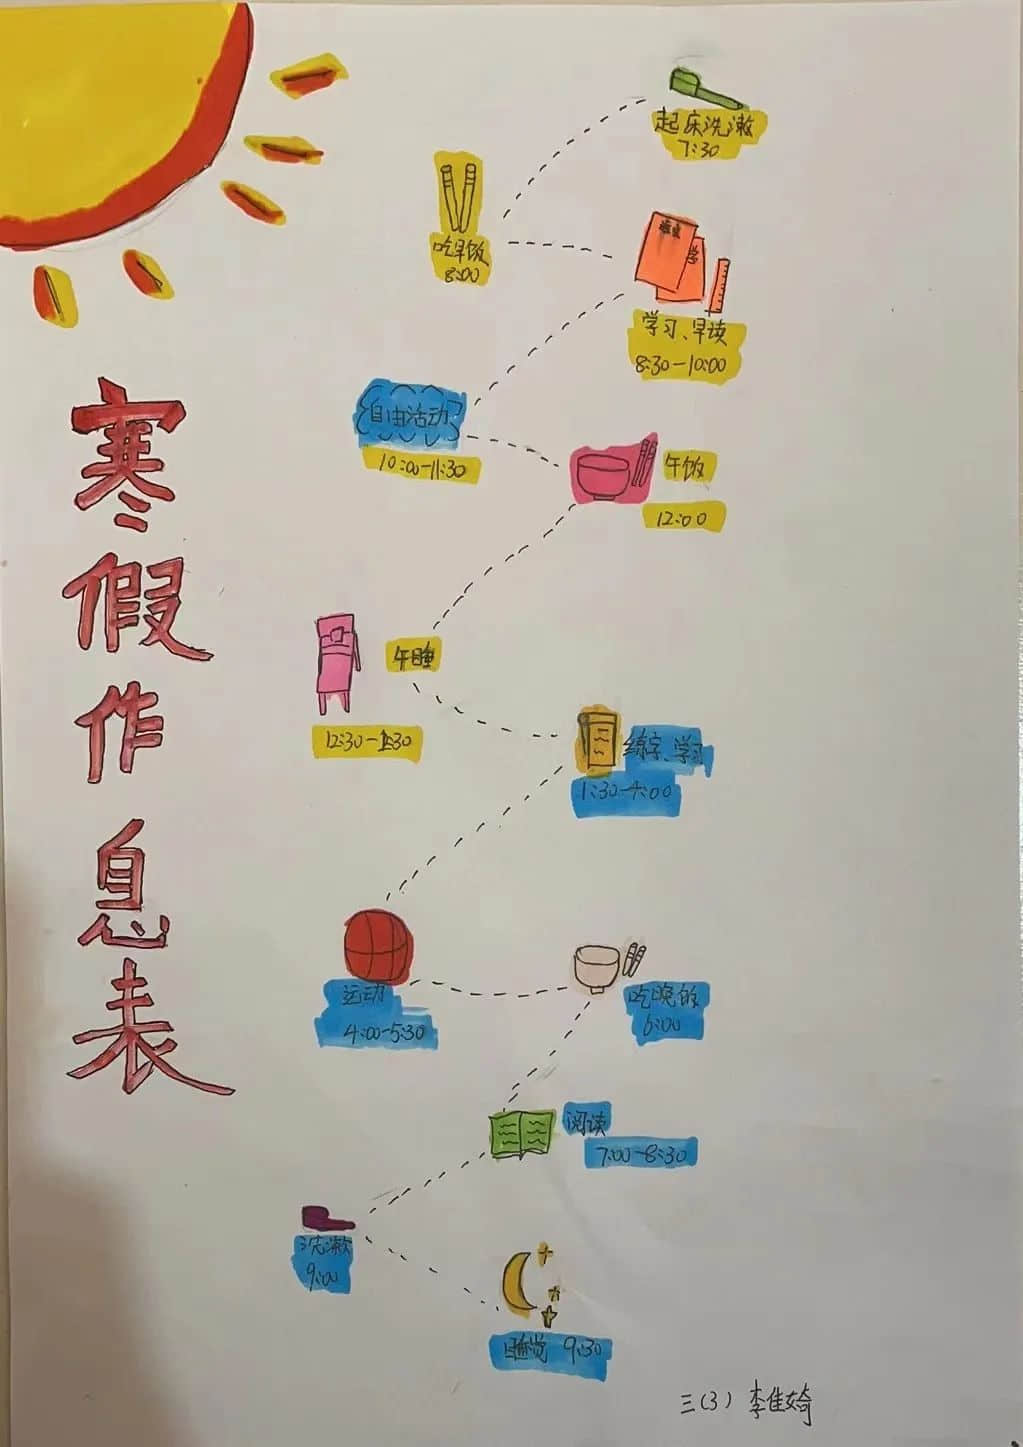 寒假作息表
起床洗漱
7:30
吃早饭
8:00
学习、早读
8:30-10:00
自由活动
10:00-11:30
午饭
12:00
午睡
12:30-1:30
练字、学习
1:30-4:00
运动
4:00-5:30
吃晚饭
6:00
阅读
7:00-8:30
洗漱
9:00
睡觉 9:30
三(3) 李佳琦